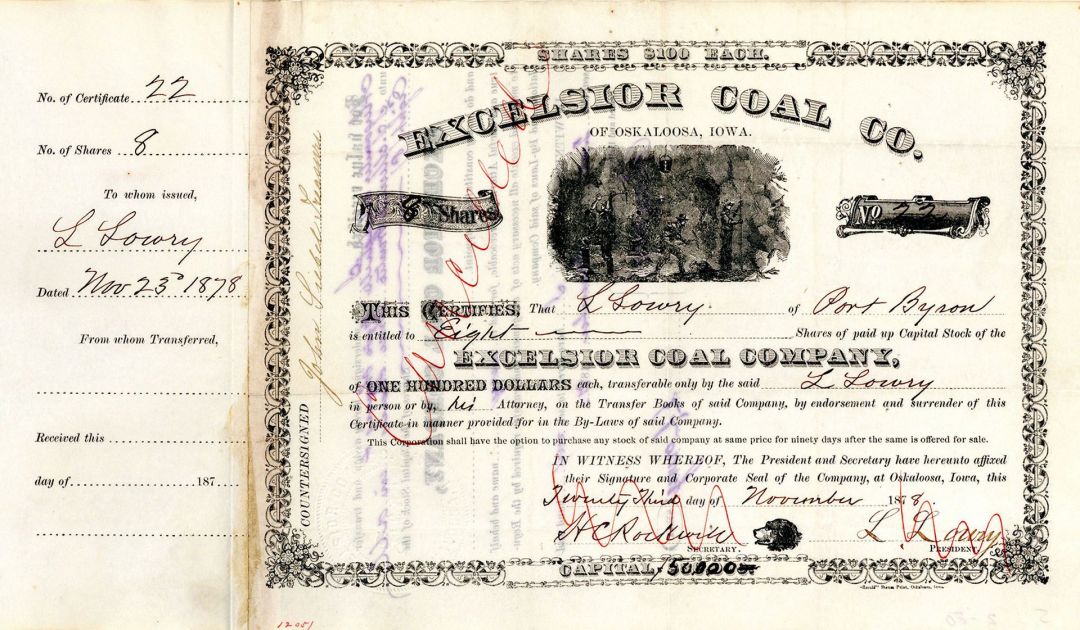 No. of Certificate 22
No. of Shares 8
To whom issued,
L Lowry
Dated Nov 23d 1878
From whom Transferred,
Received this
day of 187
SHARES $100 EACH.
EXCELSIOR COAL CO.
OF OSKALOOSA, IOWA.
8 Shares
No 22
THIS CERTIFIES, That L Lowry. of Port Byron
is entitled to Eight Shares of paid up Capital Stock of the
EXCELSIOR COAL COMPANY,
of ONE HUNDRED DOLLARS each, transferable only by the said L Lowry
in person or by, his Attorney, on the Transfer Books of said Company, by endorsement and surrender of this
Certificate in manner provided for in the By-Laws of said Company.
This Corporation shall have the option to purchase any stock of said company at same price for ninety days after the same is offered for sale.
IN WITNESS WHEREOF, The President and Secretary have hereunto affixed
their Signature and Corporate Seal of the Company, at Oskaloosa, Iowa, this
Twenty Third day of November 1878
H C Rockwell L Lowry
SECRETARY. PRESIDENT
CAPITAL, 50,000
"Herald" Steam Print, Oskaloosa, Iowa
COUNTERSIGNED John Treasurer
Cancelled
12051